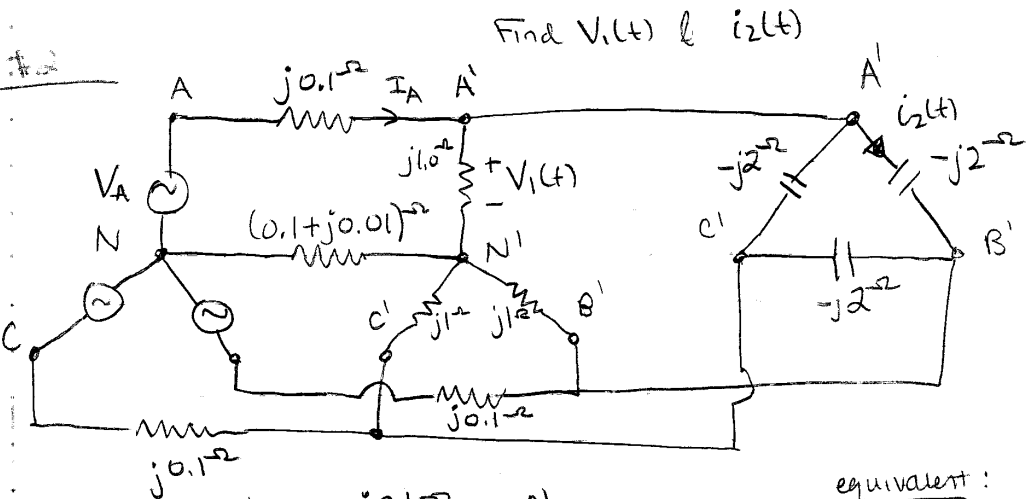 Find V₁(t) & i₂(t)
#2
A
j0.1Ω
I_A
A'
A'
i₂(t)
j1.0Ω
+
V₁(t)
-
-j2Ω
-j2Ω
V_A
N
(0.1+j0.01)Ω
N'
C'
B'
-j2Ω
C
C'
j1Ω
j1Ω
B'
j0.1Ω
j0.1Ω
equivalent: